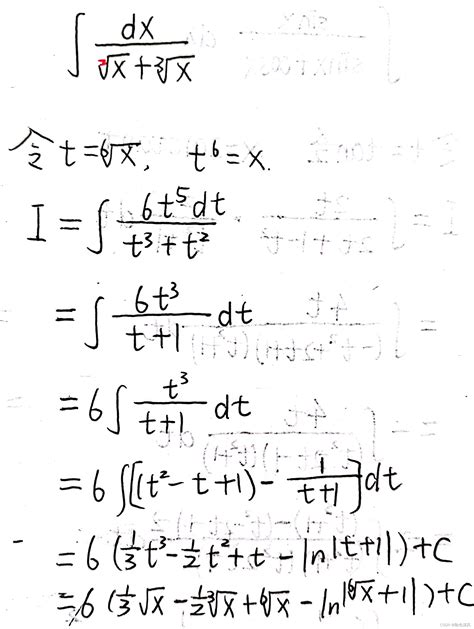 ∫ dx / (²√x + ³√x)
令 t = ⁶√x, t⁶ = x.
I = ∫ 6t⁵dt / (t³ + t²)
= ∫ 6t³ / (t+1) dt
= 6 ∫ t³ / (t+1) dt
= 6 ∫ [(t² - t + 1) - 1/(t+1)] dt
= 6 (1/3 t³ - 1/2 t² + t - ln|t+1|) + C
= 6 (1/3 √x - 1/2 ³√x + ⁶√x - ln|⁶√x + 1|) + C